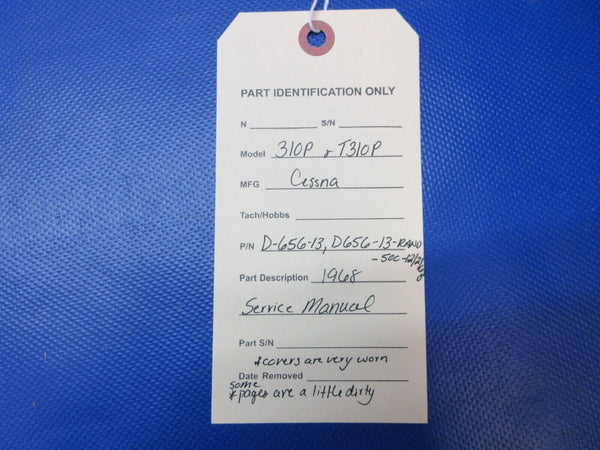 PART IDENTIFICATION ONLY
N S/N
Model 310P & T310P
MFG Cessna
Tach/Hobbs
P/N D-656-13, D656-13-RAND
-500-12/2/68
Part Description 1968
Service Manual
Part S/N
*covers are very worn
Date Removed
some
*pages are a little dirty